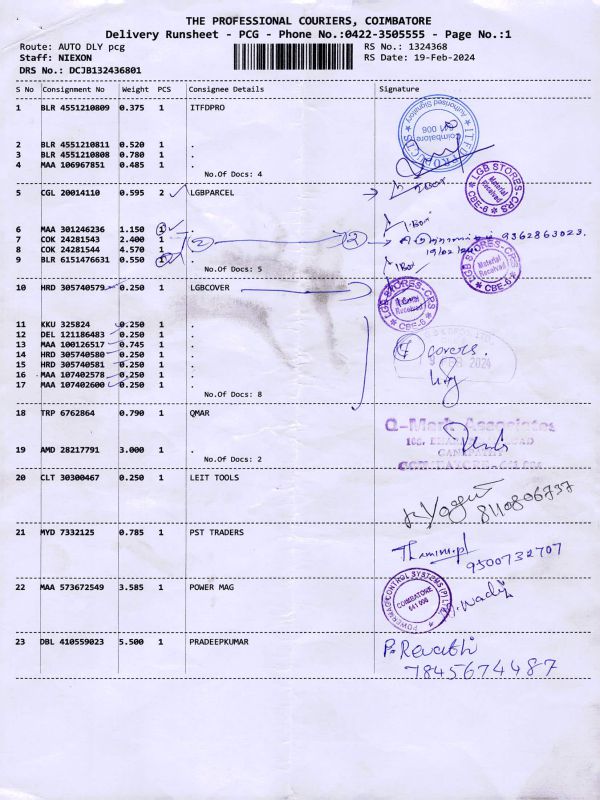 THE PROFESSIONAL COURIERS, COIMBATORE
Delivery Runsheet - PCG - Phone No.:0422-3505555 - Page No.:1
Route: AUTO DLY pcg RS No.: 1324368
Staff: NIEXON RS Date: 19-Feb-2024
DRS No.: DCJB132436801
S No Consignment No Weight PCS Consignee Details Signature
1 BLR 4551210809 0.375 1 ITFDPRO
Authorised Signatory
Coimbatore
641 006
2 BLR 4551210811 0.520 1 .
3 BLR 4551210808 0.780 1 .
4 MAA 106967851 0.485 1 .
No.Of Docs: 4
5 CGL 20014110 0.595 2 LGBPARCEL
LGB STORES-CPS
Material
Received
CBE-6
6 MAA 301246236 1.150 1 .
7 COK 24281543 2.400 1 2 2 . 9362863023.
8 COK 24281544 4.570 1 .
19/02/24
9 BLR 6151476631 0.550 1 .
No.Of Docs: 5
LGB STORES-CPS
Material
Received
CBE-6
10 HRD 305740579 0.250 1 LGBCOVER
LGB STORES-CPS
Received
CBE-6
11 KKU 325824 0.250 1 .
12 DEL 121186483 0.250 1 .
13 MAA 100126517 0.745 1 .
14 HRD 305740580 0.250 1 .
covers.
15 HRD 305740581 0.250 1 .
2024
16 MAA 107402578 0.250 1 .
17 MAA 107402600 0.250 1 .
No.Of Docs: 8
18 TRP 6762864 0.790 1 QMAR
Q-Mark Associates
19 AMD 28217791 3.000 1 .
No.Of Docs: 2
20 CLT 30300467 0.250 1 LEIT TOOLS
8110806737
21 MYD 7332125 0.785 1 PST TRADERS
9500732707
22 MAA 573672549 3.585 1 POWER MAG
POWERMAG CONTROL SYSTEMS (P) LTD.
COIMBATORE
641 006
23 DBL 410559023 5.500 1 PRADEEPKUMAR
P. Revathi
7845674487